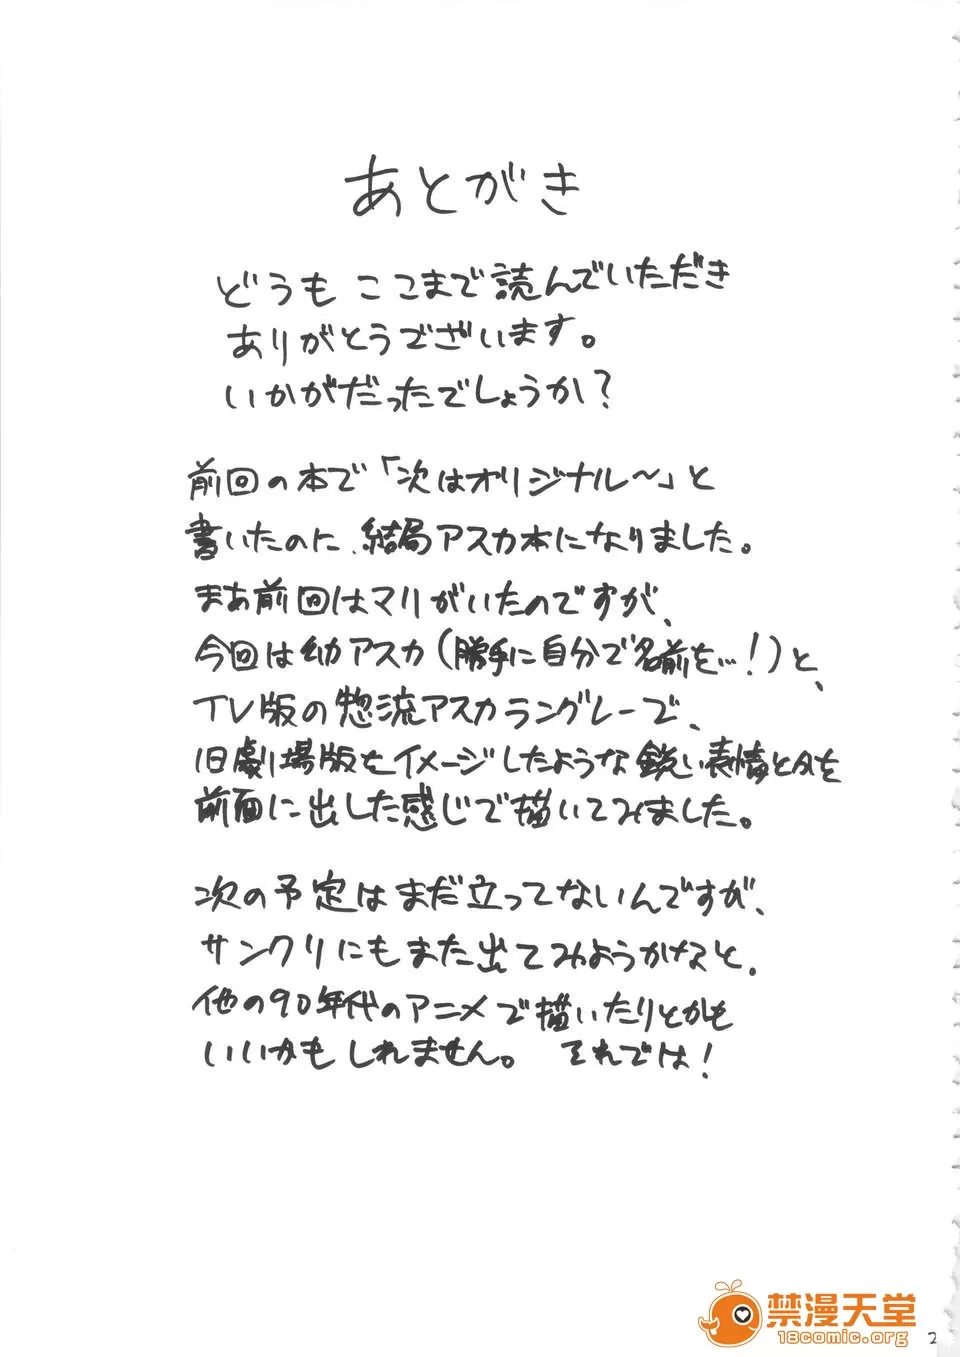 あとがき
どうも ここまで読んでいただき
ありがとうでざいます。
いかがだったでしょうか?
前回の本で「次はオリジナル～」と
書いたのに、結局アスカ本になりました。
まあ前回はマリがいたのですが、
今回は幼アスカ(勝手に自分で名前を…!)と、
TV版の惣流アスカラングレーで、
旧劇場版をイメージしたような鋭い表情とかを
前面に出した感じで描いてみました。
次の予定はまだ立ってないんですが、
サンクリにもまた出てみようかなと、
他の90年代のアニメで描いたりとかも
いいかもしれません。 それでは!
禁漫天堂
18comic.org
2